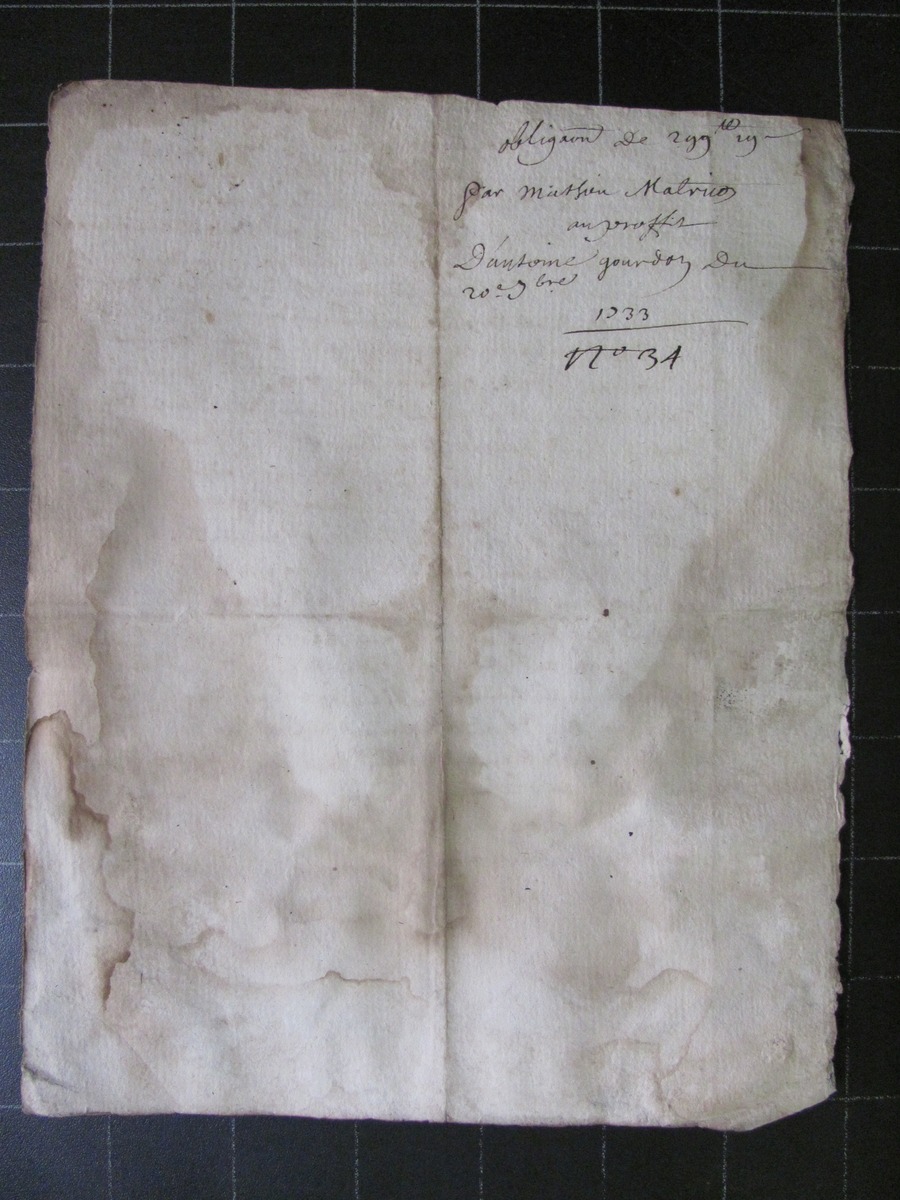 obligaon de 299tt 19
par mathieu Matricon
au proffit
D'antoine gourdon Du
20e 9bre
1733
N° 34